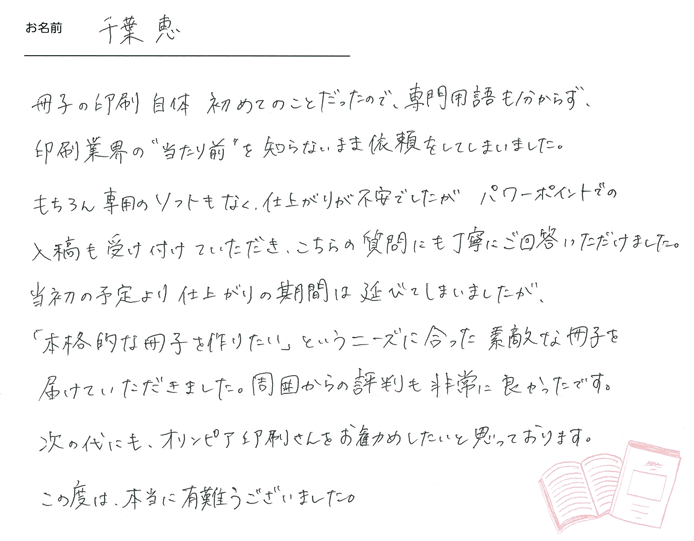 お名前 千葉 恵
冊子の印刷 自体 初めてのことだったので、専門用語も分からず、
印刷業界の"当たり前"を知らないまま依頼をしてしまいました。
もちろん専用のソフトもなく、仕上がりが不安でしたが パワーポイントでの
入稿も受け付けていただき、こちらの質問にも丁寧にご回答いただけました。
当初の予定より仕上がりの期間は延びてしまいましたが、
「本格的な冊子を作りたい」というニーズに合った素敵な冊子を
届けていただきました。周囲からの評判も非常に良かったです。
次の代にも、オリンピア印刷さんをお勧めしたいと思っております。
この度は、本当に有難うございました。